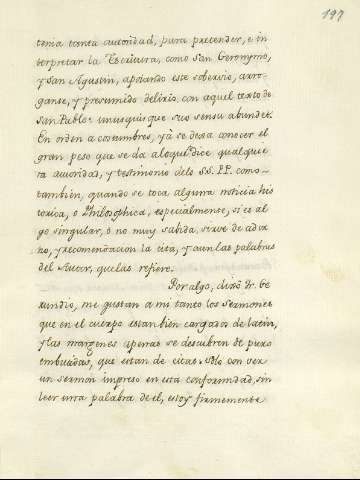 197
tenia tanta autoridad, para pretender, e in
terpretar la Escritura, como San Geronymo,
y San Agustin, apoiando este sobervio, arro-
ganse, y presumido delirio con aquel texto de
San Pablo: unusquisque suo sensu abundet.
En orden a costumbres, yà se dexa conocer el
gran peso que se da aloque dice qualquie
ra autoridad, y testimonio delos SS. PP. como
tambien, quando se toca alguna noticia his
torica, o Philosophica, especialmente, si es al
go singular, ò no muy sabida, sirve de ador
no, y recomendacion la cita, y aun las palabras
del Autor, quelas refiere.
Por algo, dixo fr. Ge
rundio, me gustan a mi tanto los Sermones
que en el cuerpo estan bien cargados de latin,
y las margenes apenas se descubren de puro
embutidas, que estan de citas. Solo con ver
un sermon impreso en esta conformidad, sin
leer una palabra de el, estoy firmemente